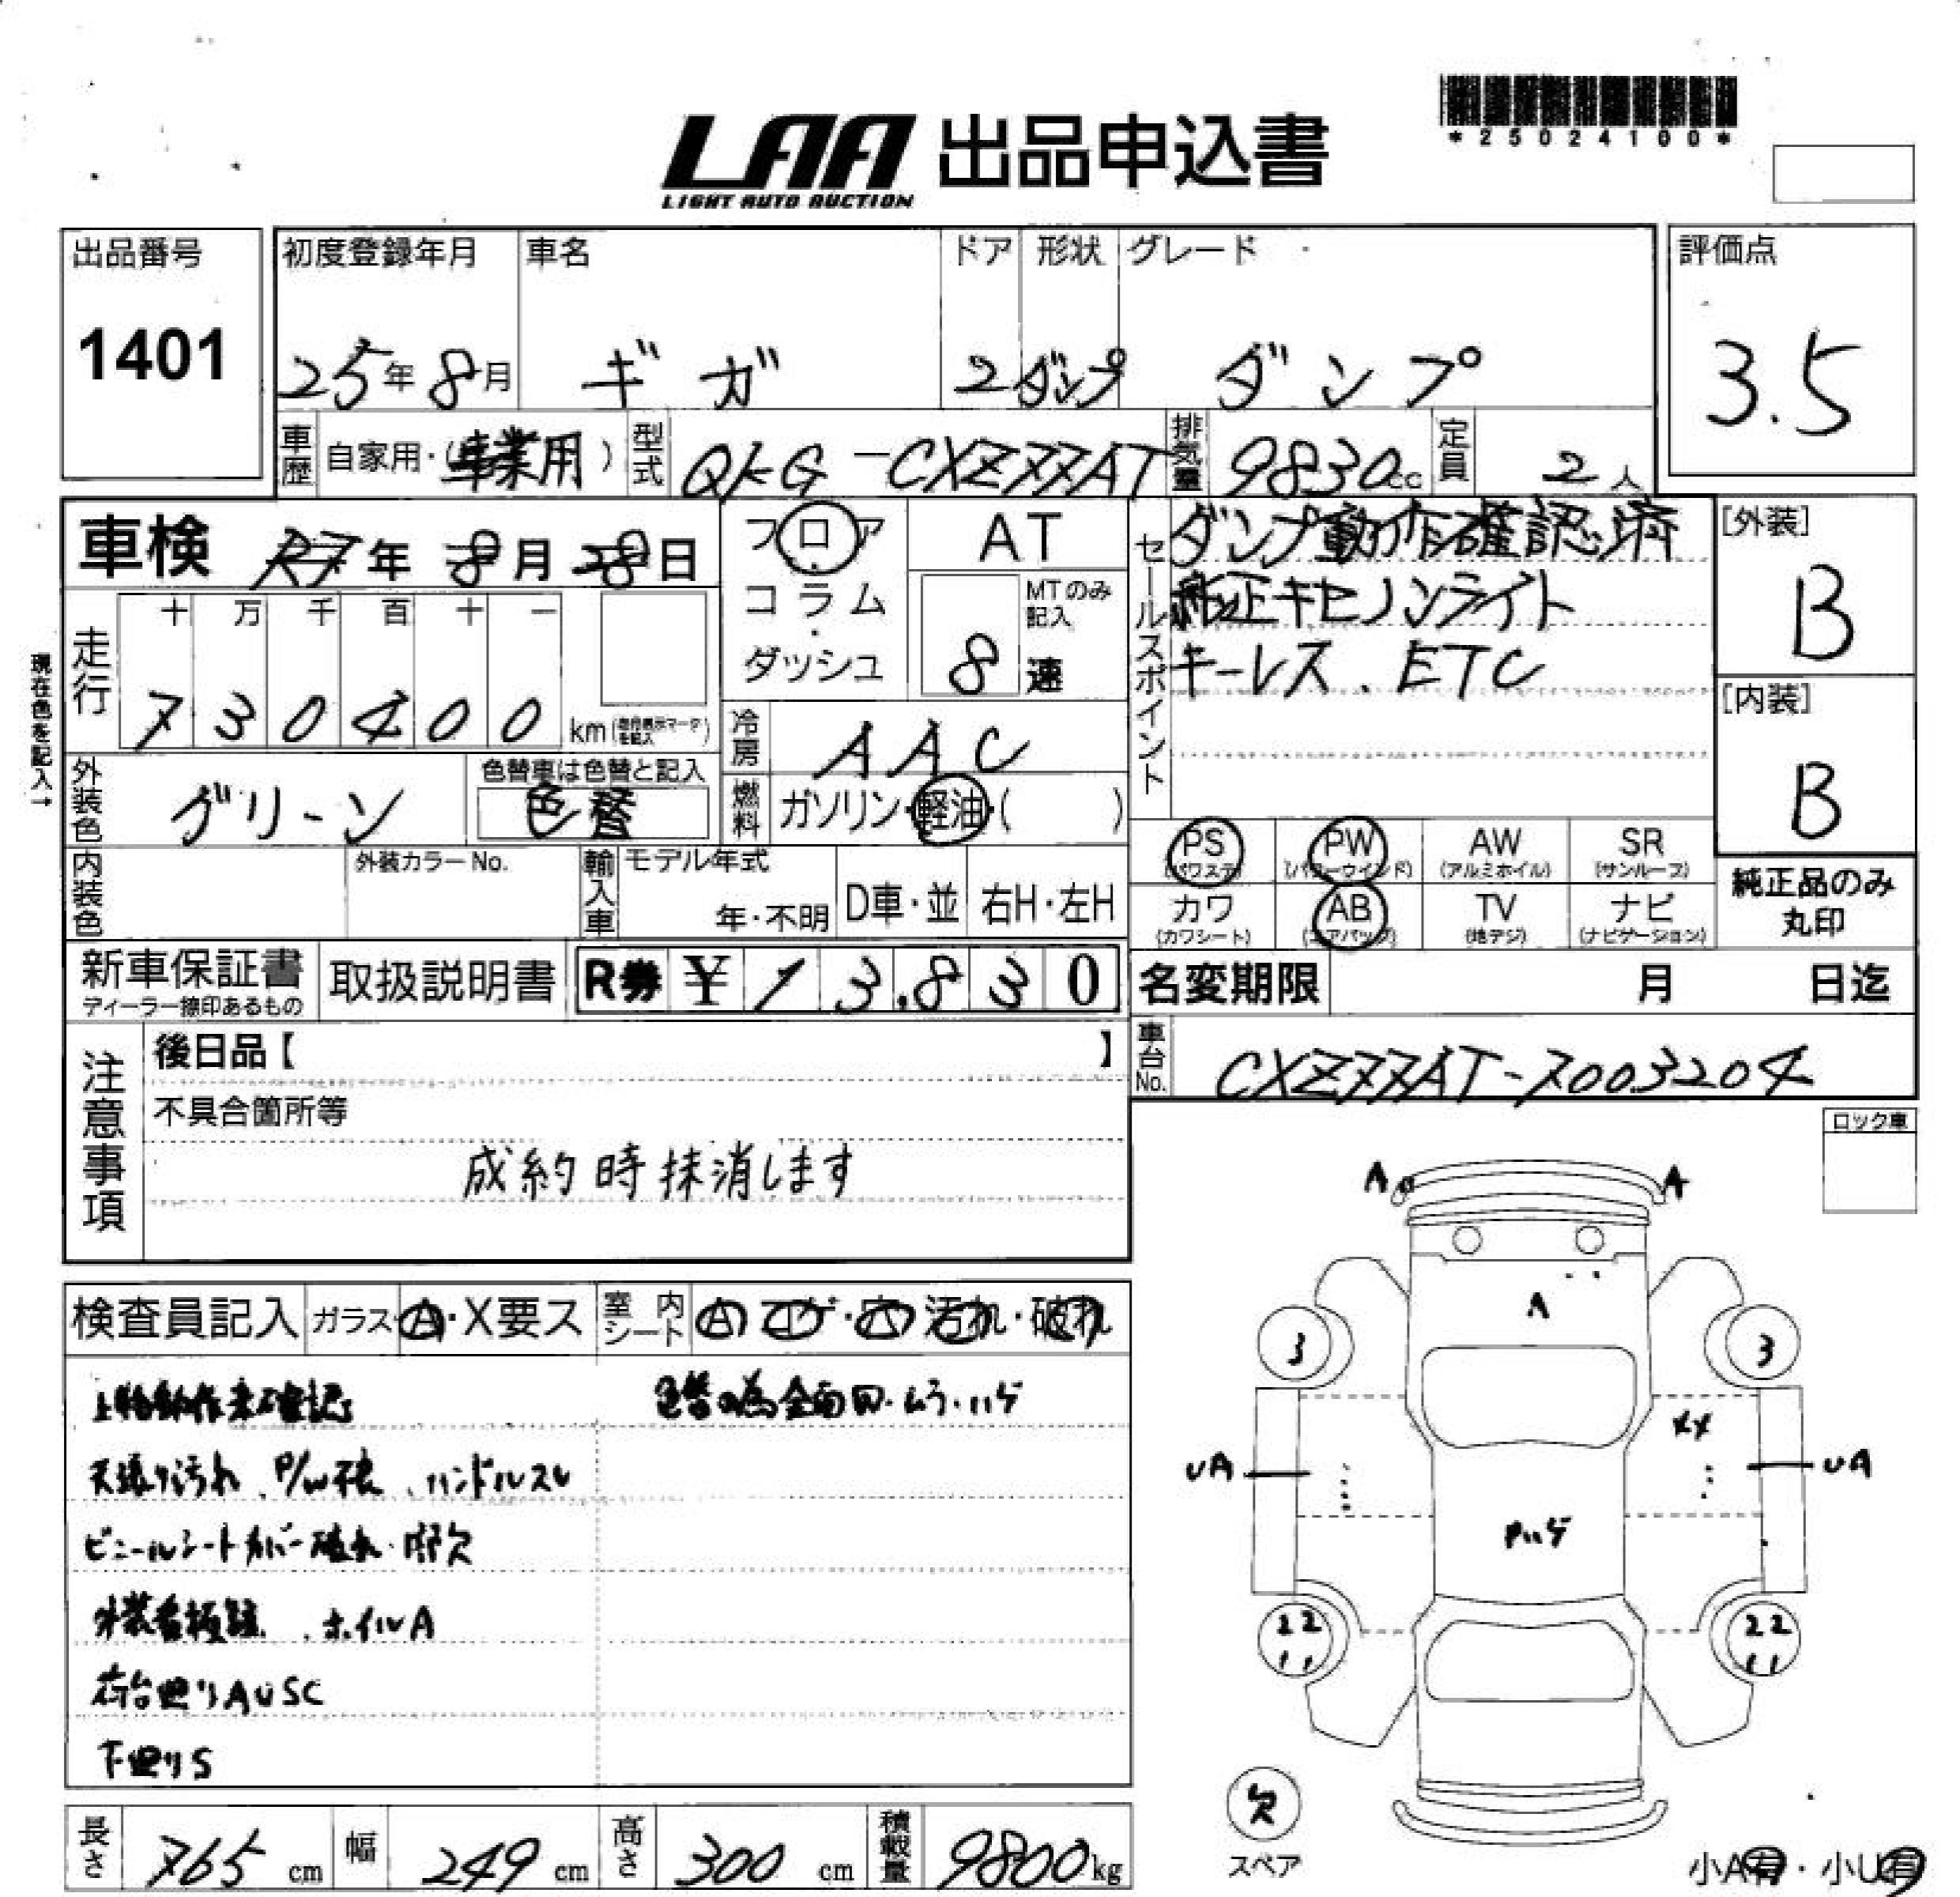 *25024100*
LAA 出品申込書
LIGHT AUTO AUCTION
出品番号 初度登録年月 車名 ドア 形状 グレード 評価点
1401 25年 8月 ギガ 2 ダンプ ダンプ 3.5
車歴 自家用・(事業用) 型式 QKG-CXZ77AT 排気量 9830cc 定員 2人
車検 R7年 8月 28日 フロア AT
コラム
ダッシュ
8 速 MTのみ記入
セールスポイント ダンプ動作確認済
純正キセノンライト
キーレス、ETC
[外装]
B
[内装]
B
現在色を記入→
走行 十 万 千 百 十 一
7 3 0 4 0 0 km
冷房 AAC
外装色 グリーン 色替車は色替と記入
色替
燃料 ガソリン・軽油・( )
PS (パワステ) PW (パワーウインド) AW (アルミホイル) SR (サンルーフ)
カワ (カワシート) AB (エアバッグ) TV (地デジ) ナビ (ナビゲーション)
純正品のみ
丸印
内装色 外装カラーNo. 輸入車 モデル年式
年・不明 D車・並 右H・左H
新車保証書 取扱説明書 R券 ¥ 1 3,8 3 0
ディーラー捺印あるもの
名変期限 月 日迄
車台No. CXZ77AT-7003204
注意事項 後日品【 】
不具合箇所等
成約時抹消します
ロック車
検査員記入 ガラス・A・X要ス 室内シート A コゲ・穴 汚れ・破れ
色替の為全面回・ムラ・ハゲ
天張り汚れ、P/W不良、ハンドルスレ
ビニールシートカバー破れ・内部欠
外装看板跡、ホイルA
荷台廻りAUSC
下廻りS
A A
A
3 3
XX
UA UA
Pハゲ
22 22
11 11
欠
スペア
小A有・小U有
長さ 765 cm 幅 249 cm 高さ 300 cm 積載量 9800kg